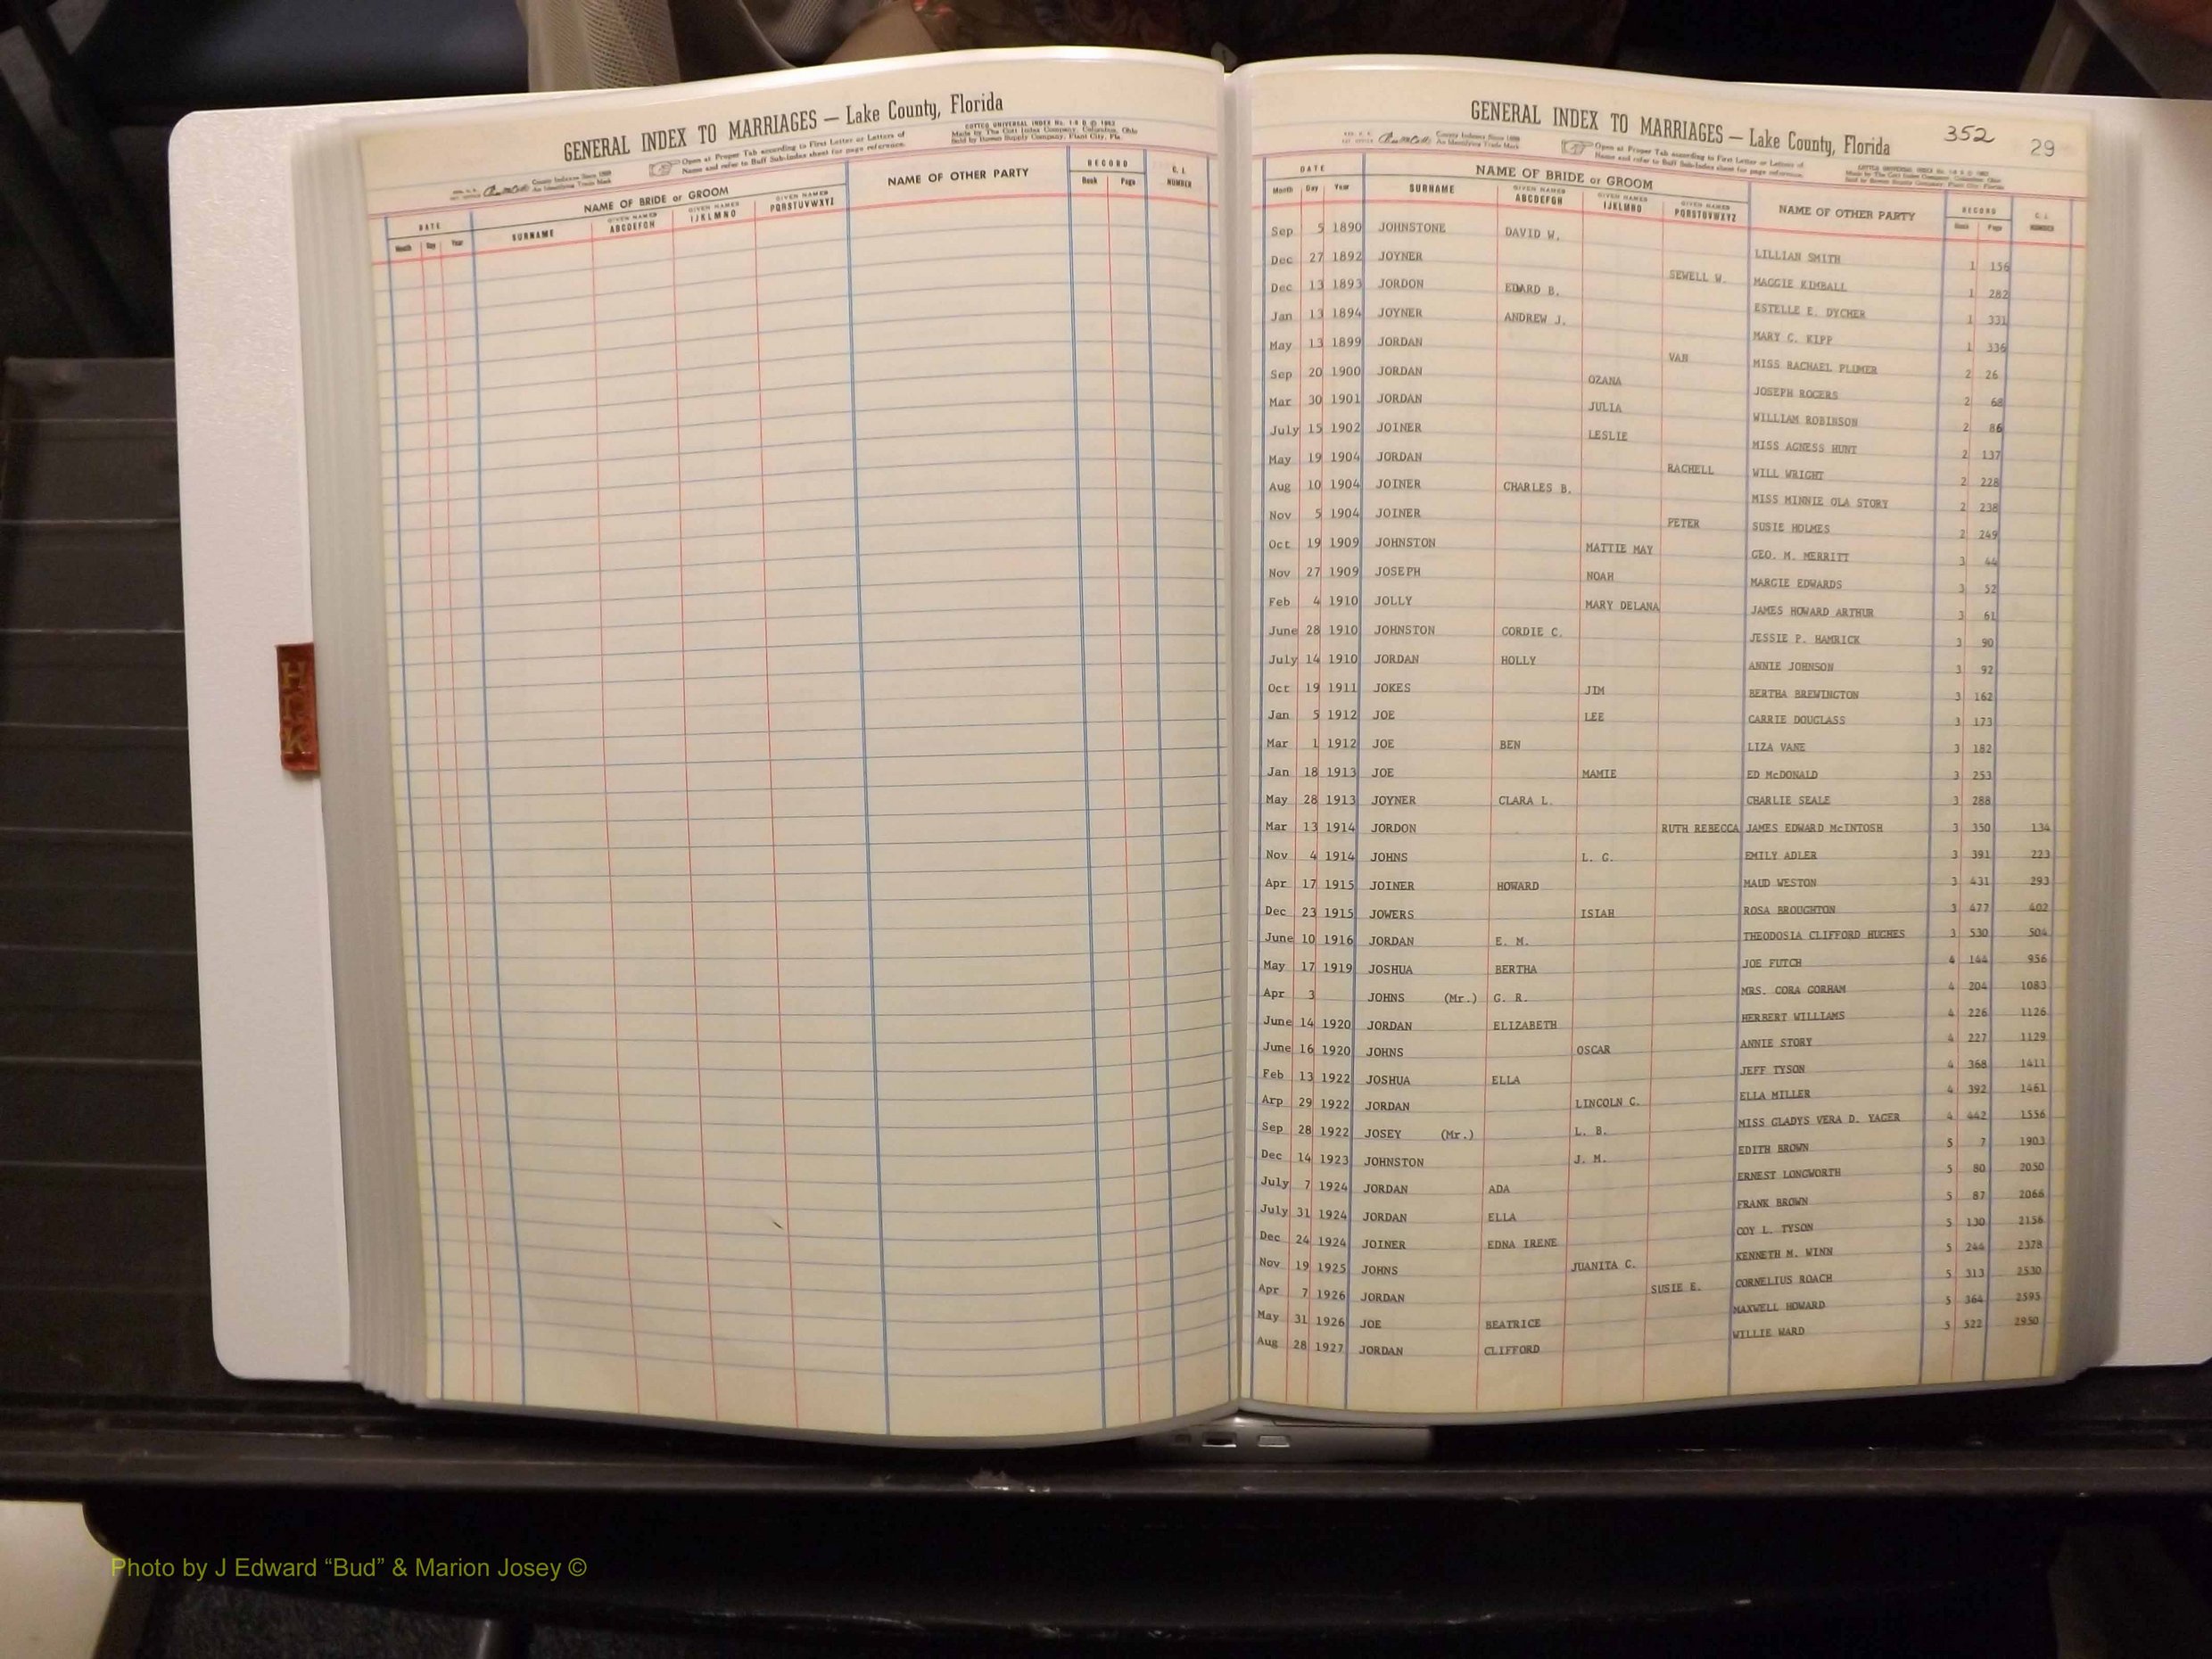 GENERAL INDEX TO MARRIAGES — Lake County, Florida
County Indexes Since 1888
An Identifying Trade Mark
Open at Proper Tab according to First Letter or Letters of
Name and refer to Buff Sub-Index sheet for page reference.
COTTCO UNIVERSAL INDEX No. 1-8 D © 1962
Made by The Cott Index Company, Columbus, Ohio
Sold by Bowen Supply Company, Plant City, Fla.
DATE NAME OF BRIDE or GROOM NAME OF OTHER PARTY RECORD C. L. NUMBER
Month Day Year SURNAME GIVEN NAMES ABCDEFGH GIVEN NAMES IJKLMNO GIVEN NAMES PQRSTUVWXYZ Book Page
HIJK
GENERAL INDEX TO MARRIAGES — Lake County, Florida 352 29
County Indexes Since 1888
An Identifying Trade Mark
Open at Proper Tab according to First Letter or Letters of
Name and refer to Buff Sub-Index sheet for page reference.
DATE NAME OF BRIDE or GROOM NAME OF OTHER PARTY RECORD C. L. NUMBER
Month Day Year SURNAME GIVEN NAMES ABCDEFGH GIVEN NAMES IJKLMNO GIVEN NAMES PQRSTUVWXYZ Book Page
Sep 5 1890 JOHNSTONE DAVID W. LILLIAN SMITH 1 156
Dec 27 1892 JOYNER SEWELL W. MAGGIE KIMBALL 1 282
Dec 13 1893 JORDON EDWARD B. ESTELLE E. DYCHER 1 331
Jan 13 1894 JOYNER ANDREW J. MARY C. KIPP 1 336
May 13 1899 JORDAN VAN MISS RACHAEL PLUMER 2 26
Sep 20 1900 JORDAN OZANA JOSEPH ROGERS 2 68
Mar 30 1901 JORDAN JULIA WILLIAM ROBINSON 2 86
July 15 1902 JOINER LESLIE MISS AGNESS HUNT 2 137
May 19 1904 JORDAN RACHELL WILL WRIGHT 2 228
Aug 10 1904 JOINER CHARLES B. MISS MINNIE OLA STORY 2 238
Nov 5 1904 JOINER PETER SUSIE HOLMES 2 249
Oct 19 1909 JOHNSTON MATTIE MAY GEO. M. MERRITT 3 44
Nov 27 1909 JOSEPH NOAH MARGIE EDWARDS 3 52
Feb 4 1910 JOLLY MARY DELANA JAMES HOWARD ARTHUR 3 61
June 28 1910 JOHNSTON CORDIE C. JESSIE P. HAMRICK 3 90
July 14 1910 JORDAN HOLLY ANNIE JOHNSON 3 92
Oct 19 1911 JOKES JIM BERTHA BREWINGTON 3 162
Jan 5 1912 JOE LEE CARRIE DOUGLASS 3 173
Mar 1 1912 JOE BEN LIZA VANE 3 182
Jan 18 1913 JOE MAMIE ED McDONALD 3 253
May 28 1913 JOYNER CLARA L. CHARLIE SEALE 3 288
Mar 13 1914 JORDON RUTH REBECCA JAMES EDWARD McINTOSH 3 350 134
Nov 4 1914 JOHNS L. G. EMILY ADLER 3 391 223
Apr 17 1915 JOINER HOWARD MAUD WESTON 3 431 293
Dec 23 1915 JOWERS ISIAH ROSA BROUGHTON 3 477 402
June 10 1916 JORDAN E. M. THEODOSIA CLIFFORD HUGHES 3 530 504
May 17 1919 JOSHUA BERTHA JOE FUTCH 4 144 956
Apr 3 JOHNS (Mr.) G. R. MRS. CORA GORHAM 4 204 1083
June 14 1920 JORDAN ELIZABETH HERBERT WILLIAMS 4 226 1126
June 16 1920 JOHNS OSCAR ANNIE STORY 4 227 1129
Feb 13 1922 JOSHUA ELLA JEFF TYSON 4 368 1411
Arp 29 1922 JORDAN LINCOLN C. ELLA MILLER 4 392 1461
Sep 28 1922 JOSEY (Mr.) L. B. MISS GLADYS VERA D. YAGER 4 442 1556
Dec 14 1923 JOHNSTON J. M. EDITH BROWN 5 7 1903
July 7 1924 JORDAN ADA ERNEST LONGWORTH 5 80 2050
July 31 1924 JORDAN ELLA FRANK BROWN 5 87 2066
Dec 24 1924 JOINER EDNA IRENE COY L. TYSON 5 130 2156
Nov 19 1925 JOHNS JUANITA C. KENNETH M. WINN 5 244 2378
Apr 7 1926 JORDAN SUSIE E. CORNELIUS ROACH 5 313 2530
May 31 1926 JOE BEATRICE MAXWELL HOWARD 5 364 2595
Aug 28 1927 JORDAN CLIFFORD WILLIE WARD 5 522 2950
Photo by J Edward “Bud” & Marion Josey ©